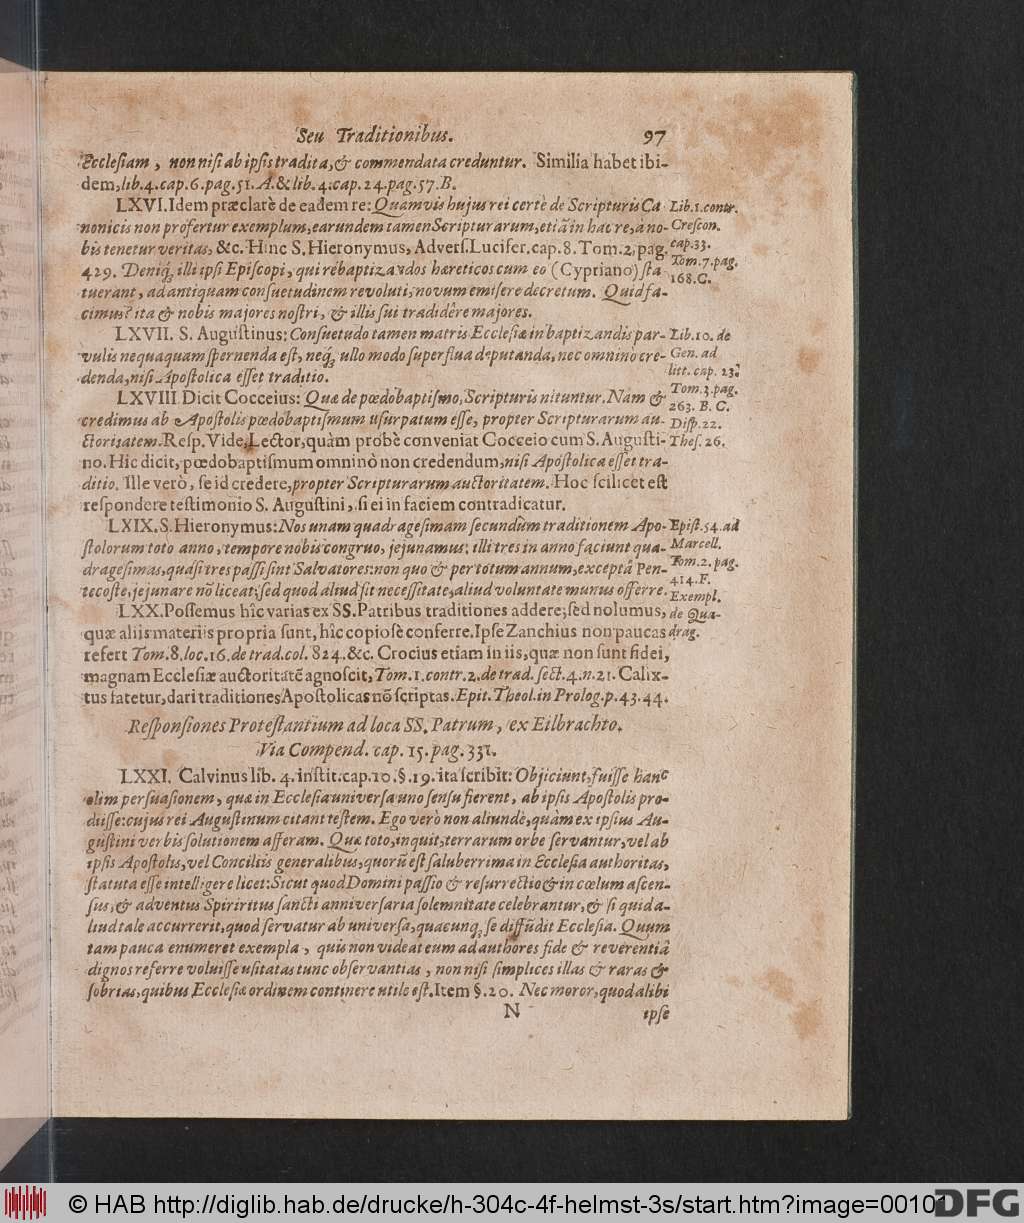 Seu Traditionibus. 97
Ecclesiam, non nisi ab ipsis tradita, & commendata creduntur. Similia habet ibi-
dem, lib. 4. cap. 6. pag. 51. A. & lib. 4. cap. 24. pag. 57. B.
LXVI. Idem præclarè de eadem re: Quamvis hujus rei certè de Scripturis Ca
nonicis non profertur exemplum, earundem tamen Scripturarum, etiã in hac re, à no-
bis tenetur veritas, &c. Hinc S. Hieronymus, Advers. Lucifer. cap. 8. Tom. 2. pag.
429. Deniq; illi ipsi Episcopi, qui rebaptizandos hæreticos cum eo (Cypriano) sta-
tuerant, ad antiquam consuetudinem revoluti, novum emisere decretum. Quid fa-
cimus? ita & nobis majores nostri, & illis sui tradidêre majores.
Lib. 1. contr.
Crescon.
cap. 33.
Tom. 7. pag.
168. C.
LXVII. S. Augustinus: Consuetudo tamen matris Ecclesiæ in baptizandis par-
vulis nequaquam spernenda est, neq; ullo modo superflua deputanda, nec omnino cre-
denda, nisi Apostolica esset traditio.
Lib. 10. de
Gen. ad
litt. cap. 23.
Tom. 3. pag.
263. B. C.
LXVIII Dicit Cocceius: Quæ de pœdobaptismo, Scripturis nituntur. Nam &
credimus ab Apostolis pœdobaptismum usurpatum esse, propter Scripturarum au-
ctoritatem. Resp. Vide, Lector, quàm probè conveniat Cocceio cum S. Augusti-
no. Hic dicit, pœdobaptismum omninò non credendum, nisi Apostolica esset tra-
ditio. Ille verò, se id credere, propter Scripturarum auctoritatem. Hoc scilicet est
respondere testimonio S. Augustini, si ei in faciem contradicatur.
Disp. 22.
Thes. 26.
LXIX. S. Hieronymus: Nos unam quadragesimam secundùm traditionem Apo-
stolorum toto anno, tempore nobis congruo, jejunamus: illi tres in anno faciunt qua-
dragesimas, quasi tres passi sint Salvatores: non quo & per totum annum, exceptâ Pen-
tecoste, jejunare nõ liceat; sed quod aliud sit necessitate, aliud voluntate munus offerre.
Epist. 54. ad
Marcell.
Tom. 2. pag.
414. F.
Exempl.
de Qua-
drag.
LXX. Possemus hîc varias ex SS. Patribus traditiones addere; sed nolumus,
quæ aliis materiis propria sunt, hîc copiosè conferre. Ipse Zanchius non paucas
refert Tom. 8. loc. 16. de trad. col. 824. &c. Crocius etiam in iis, quæ non sunt fidei,
magnam Ecclesiæ auctoritatẽ agnoscit, Tom. 1. contr. 2. de trad. sect. 4. n. 21. Calix-
tus fatetur, dari traditiones Apostolicas nõ scriptas. Epit. Theol. in Prolog. p. 43. 44.
Responsiones Protestantium ad loca SS. Patrum, ex Eilbrachto.
Via Compend. cap. 15. pag. 331.
LXXI. Calvinus lib. 4. instit. cap. 10. §. 19. ita scribit: Objiciunt, fuisse hanc
olim persuasionem, quæ in Ecclesia universa uno sensu fierent, ab ipsis Apostolis pro-
diisse: cujus rei Augustinum citant testem. Ego verò non aliundè, quàm ex ipsius Au-
gustini verbis solutionem afferam. Quæ toto, inquit, terrarum orbe servantur, vel ab
ipsis Apostolis, vel Conciliis generalibus, quorũ est saluberrima in Ecclesia authoritas,
statuta esse intelligere licet: Sicut quod Domini passio & resurrectio & in cœlum ascen-
sus, & adventus Spiriritus sancti anniversaria solemnitate celebrantur, & si quid a-
liud tale accurrerit, quod servatur ab universa, quacunq; se diffũdit Ecclesia. Quum
tam pauca enumeret exempla, quis non videat eum ad authores fide & reverentiâ
dignos referre voluisse usitatas tunc observantias, non nisi simplices illas & raras &
sobrias, quibus Ecclesiæ ordinem continere utile est. Item §. 20. Nec moror, quod alibi
N ipse
© HAB http://diglib.hab.de/drucke/h-304c-4f-helmst-3s/start.htm?image=00101
DFG